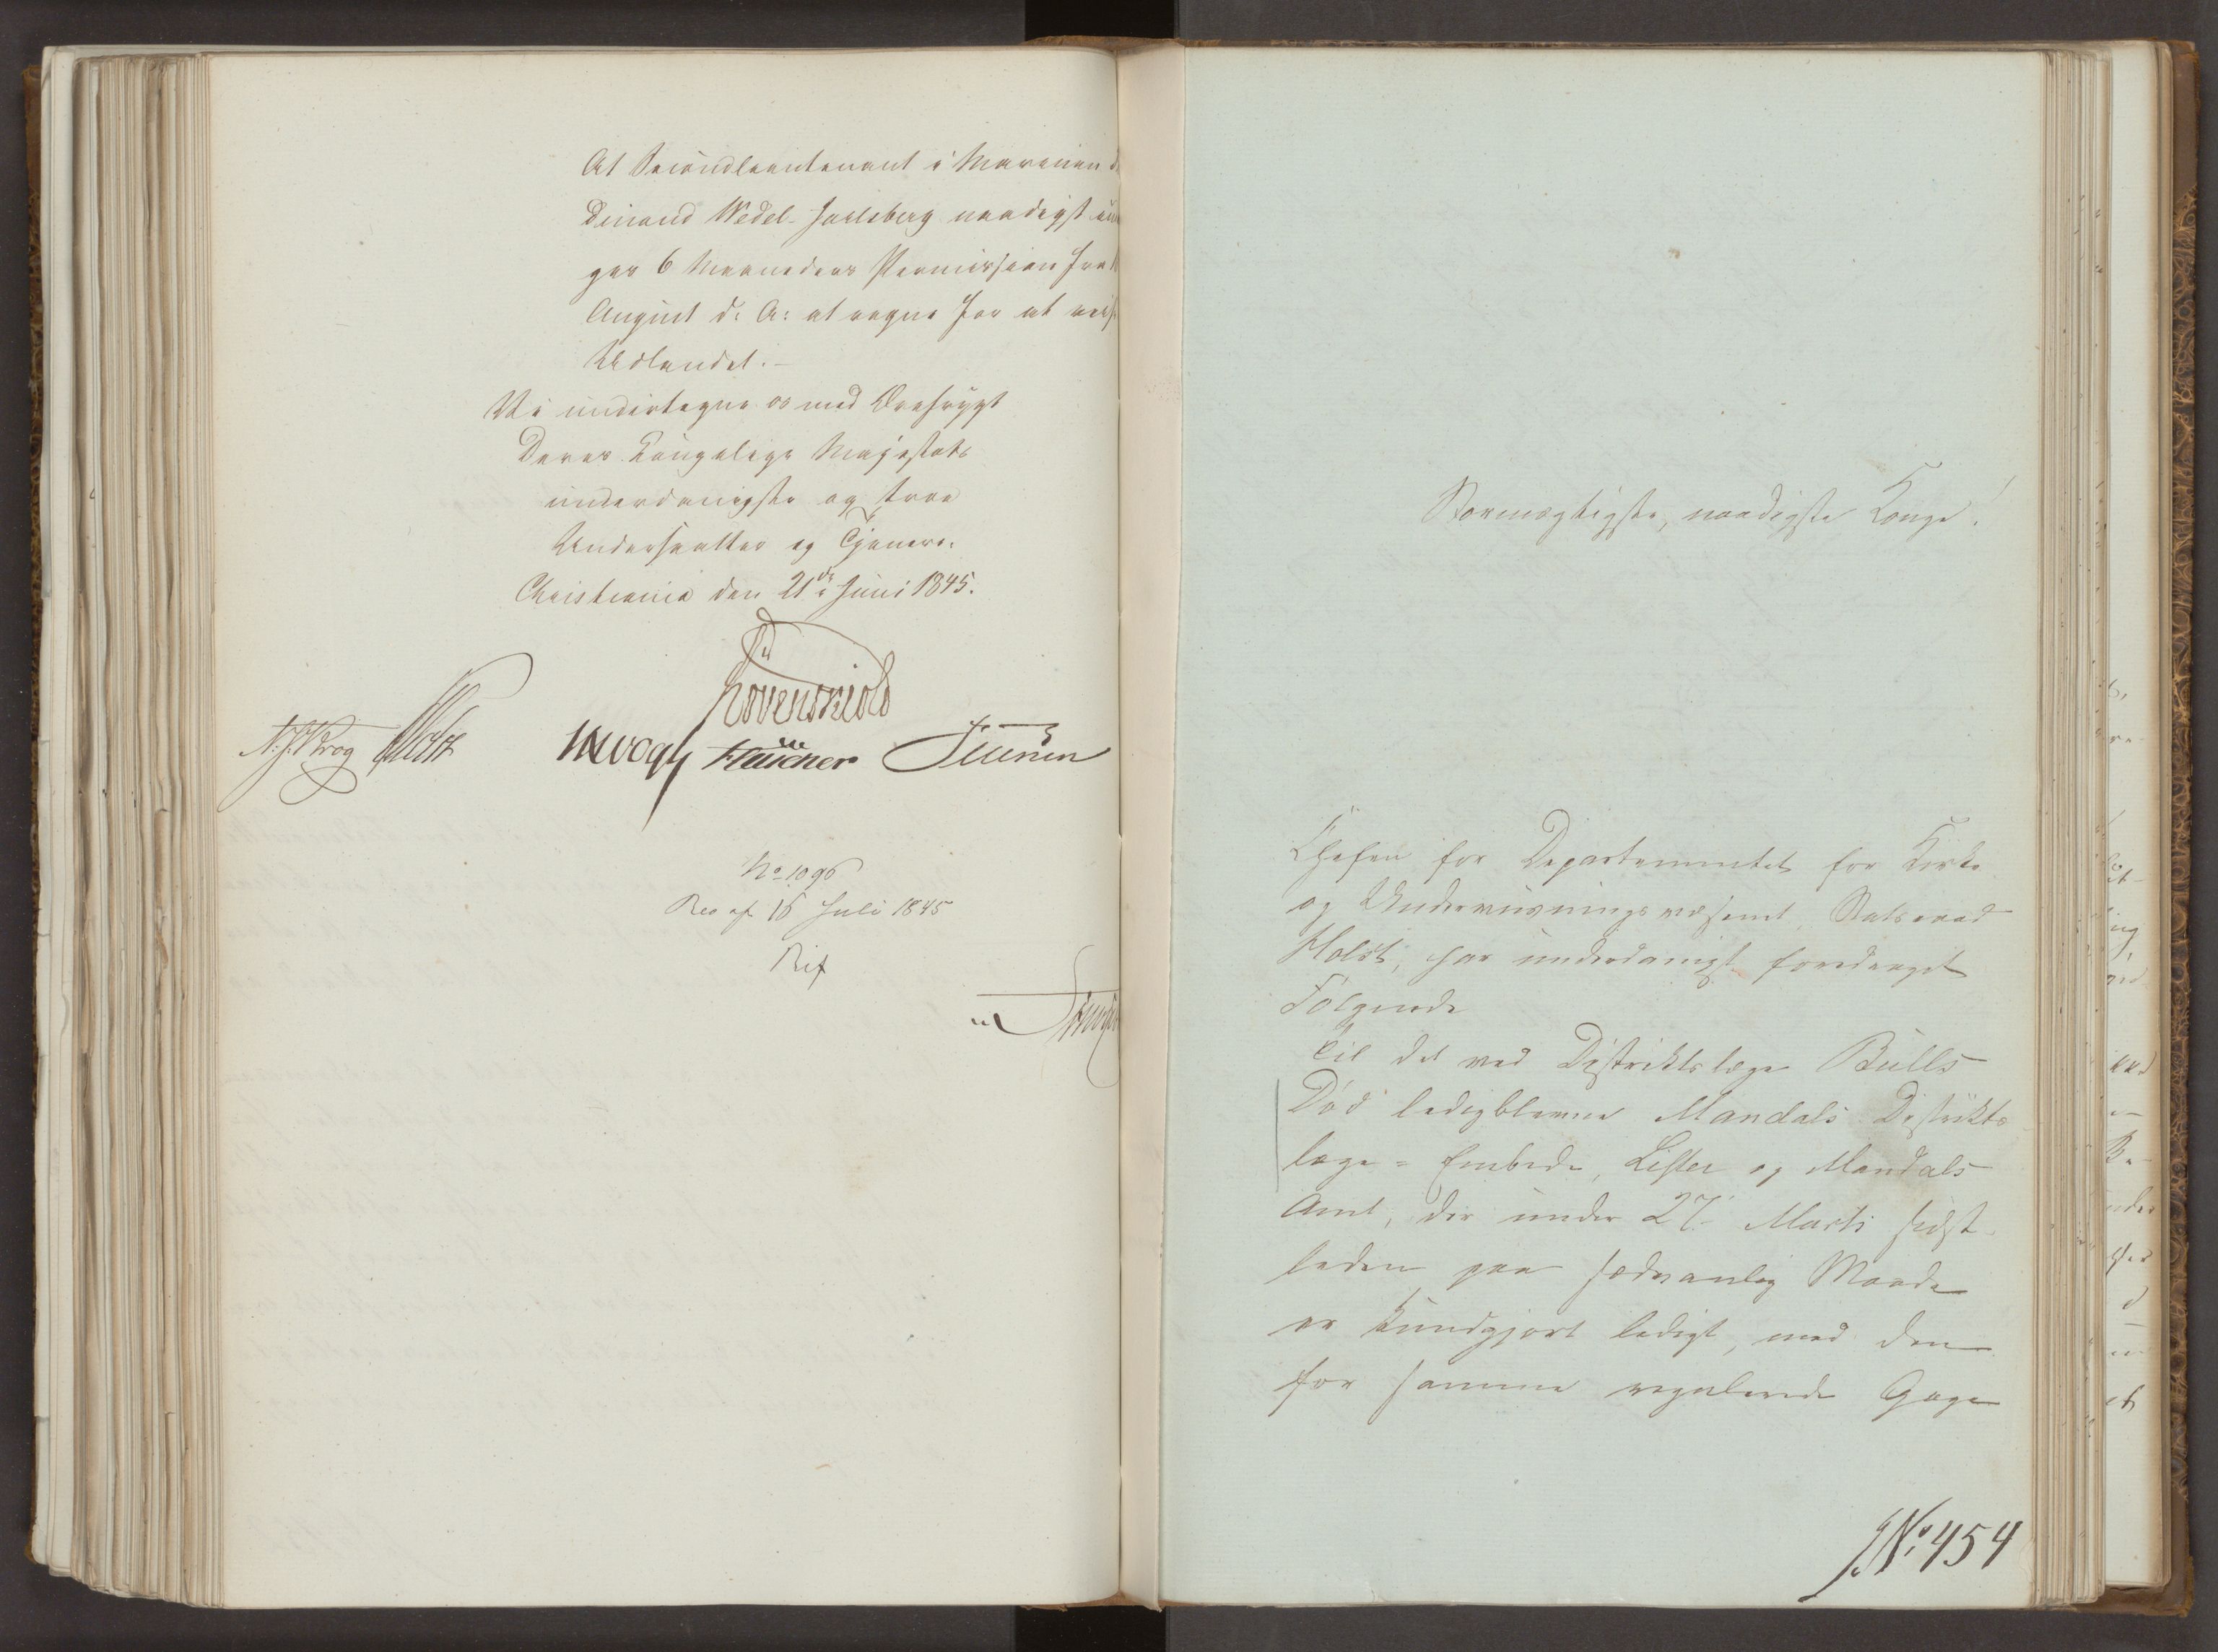 At Secondlieutenant i Marinen
Wedel-Jarlsberg naadigst
ges 6 Maaneders Permission fra
August d: A: at regne for at reise
Udlandet.-
Vi undertegne os med Ærefrygt
Deres Kongelige Majestæts
underdanigste og troe
Undersaatter og Tjenere.
Christiania den 21de Juni 1845.
Løvenskiold
N. J. Krog Holst Vogt Fleischer Petersen
No 1096
Res af 16 Juli 1845
Stormægtigste, naadigste Konge!
Chefen for Departementet for Kirke
og Undervisningsvæsenet, Statsraad
Holst, har underdanigst foredraget
Følgende
Til det ved Distriktslæge Bulls
Død ledigblevne Mandals Distrikts
læge=Embede, Lister og Mandals
Amt, der under 27. Marts sidst-
leden paa sædvanlig Maade
er kundgjort ledigt, med den
for samme regulerede Gage
JNo 454